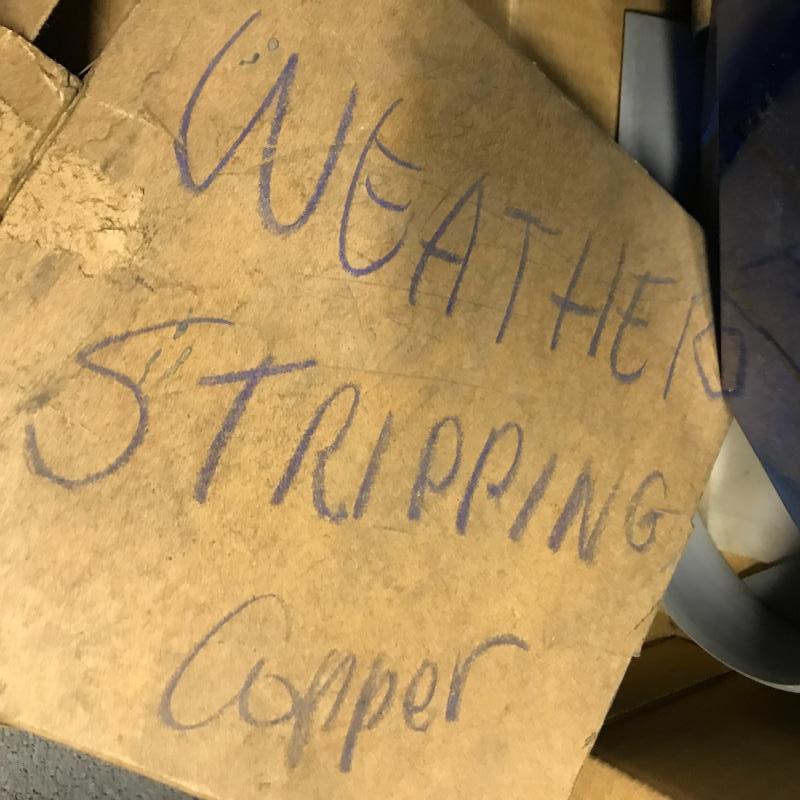 WEATHER
STRIPPING
Copper